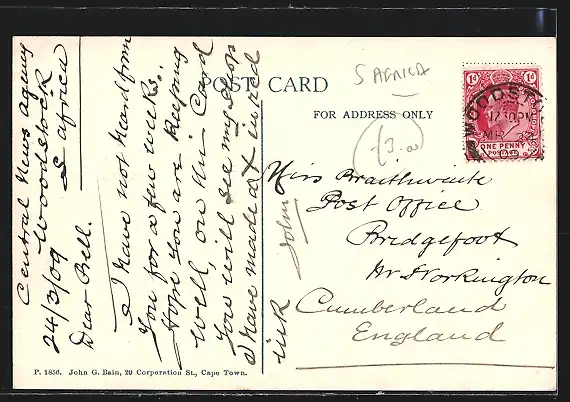 Central News Agency
Woodstock
S Africa
24/3/09
Dear Bell.
I have not heard from
you for a few weeks.
Hope you are keeping
well, on this Card
you will see my shop
I have made a X in red
ink
John
POST CARD
FOR ADDRESS ONLY
S AFRICA
(3.00)
1d 1d
ONE PENNY
POSTAGE
WOODST
1230PM
MR 24
Miss Braithwaite
Post Office
Bridgefoot
Nr Workington
Cumberland
England
P. 1856. John G. Bain, 29 Corporation St., Cape Town.